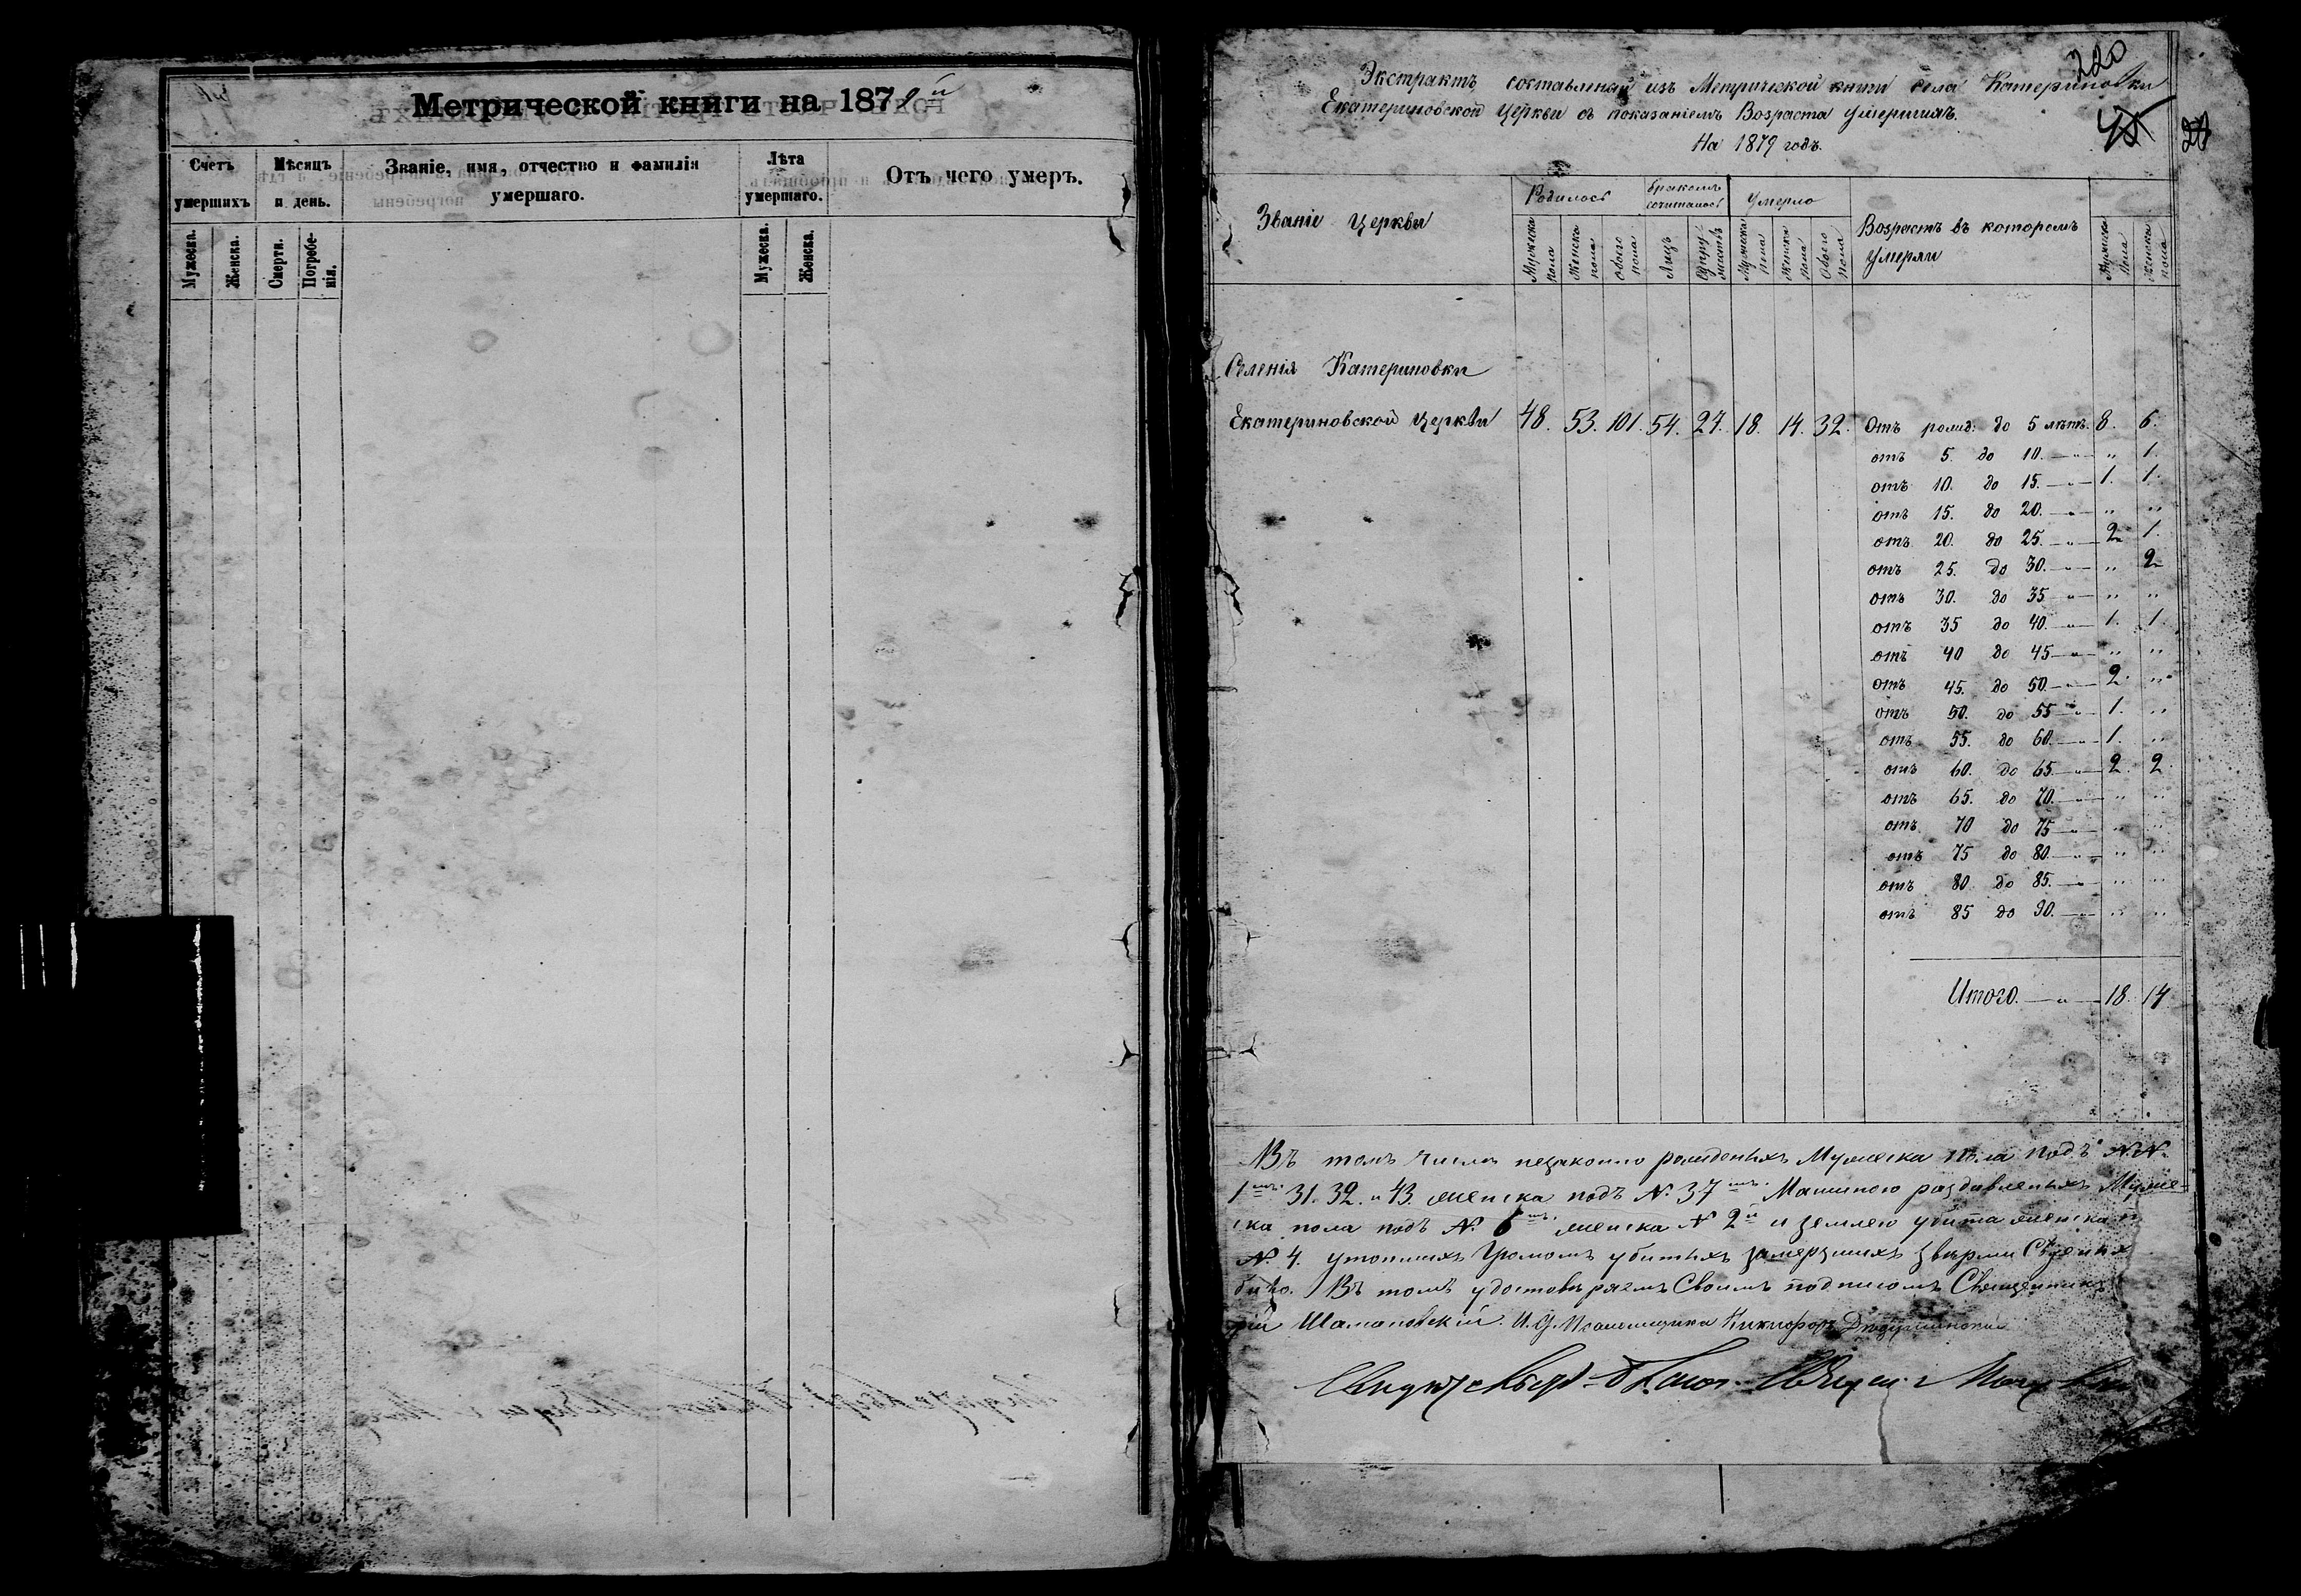 Метрической книги на 1879й
Счетъ умершихъ
Мѣсяцъ и день.
Званіе, имя, отчество и фамилія умершаго.
Лѣта умершаго.
Отъ чего умеръ.
Мужеска.
Женска.
Смерти.
Погребенія.
Мужеска.
Женска.
220
Экстрактъ составленый изъ Метрической книги села Катериновки
Екатериновской Церкви съ показаніемъ Возраста Умершихъ.
На 1879 годъ.
Званіе Церкви
Родилось
бракомъ сочиталось
Умерло
Возрастъ въ которомъ Умерли
Мужеска пола
Женска пола
Обоего пола
Лицъ
Супружествъ
Мужеска пола
Женска пола
Обоего пола
Мужеска пола
Женска пола
Селенія Катериновки
Екатериновской Церкви 48. 53. 101. 54. 27. 18. 14. 32. Отъ рожд: до 5 лѣтъ. 8. 6.
отъ 5. до 10. — „ — „ 1.
отъ 10. до 15. — „ — 1. 1.
отъ 15. до 20. — „ — „ „
отъ 20. до 25. — „ — 2 1.
отъ 25. до 30. — „ — „ 2
отъ 30. до 35 — „ — „ „
отъ 35 до 40. — „ — 1. 1.
отъ 40 до 45 — „ — „ „
отъ 45. до 50. — „ — 2. „
отъ 50. до 55 — „ — 1. „
отъ 55. до 60. — „ — 1. „
отъ 60. до 65. — „ — 2. 2.
отъ 65. до 70. — „ — „ „
отъ 70 до 75 — „ — „ „
отъ 75 до 80. — „ — „ „
отъ 80 до 85. — „ — „ „
отъ 85 до 90. — „ — „ „
Итого. — „ — 18. 14.
Въ томъ числѣ незаконно рожденыхъ Мужеска пола подъ N.N.
1мъ 31. 32. и 43. женска подъ N. 37мъ. Машиною раздавленыхъ Муже-
ска пола подъ N. 6мъ. женска N 2й и землею убита женска п
N. 4. утопшихъ Громомъ убитыхъ замерзшихъ звѣрми Съѣденых
было. Въ томъ удостовѣряемъ Своимъ подписомъ Священникъ
рій Шамановскій. И. д. Псаломщика Никифоръ